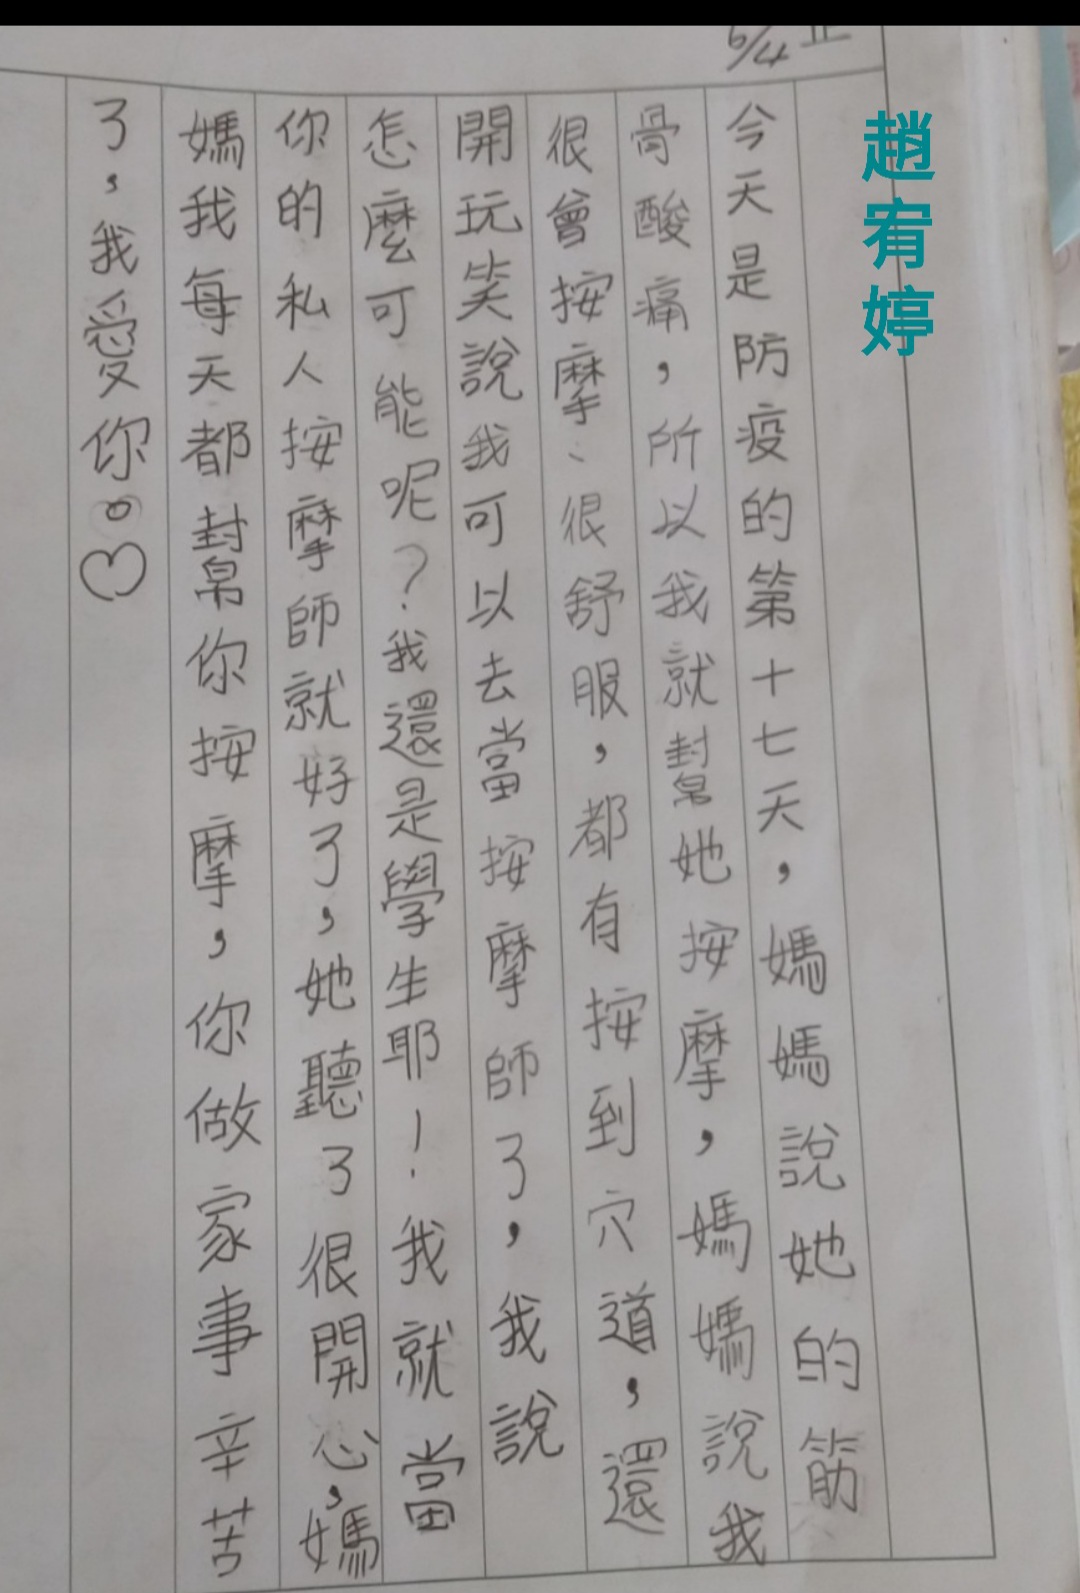 6/4
趙宥婷
今天是防疫的第十七天，媽媽說她的筋
骨酸痛，所以我就幫她按摩，媽媽說我
很會按摩、很舒服，都有按到穴道，還
開玩笑說我可以去當按摩師了，我說
怎麼可能呢？我還是學生耶！我就當
你的私人按摩師就好了，她聽了很開心，媽
媽我每天都幫你按摩，你做家事辛苦
了，我愛你。♡